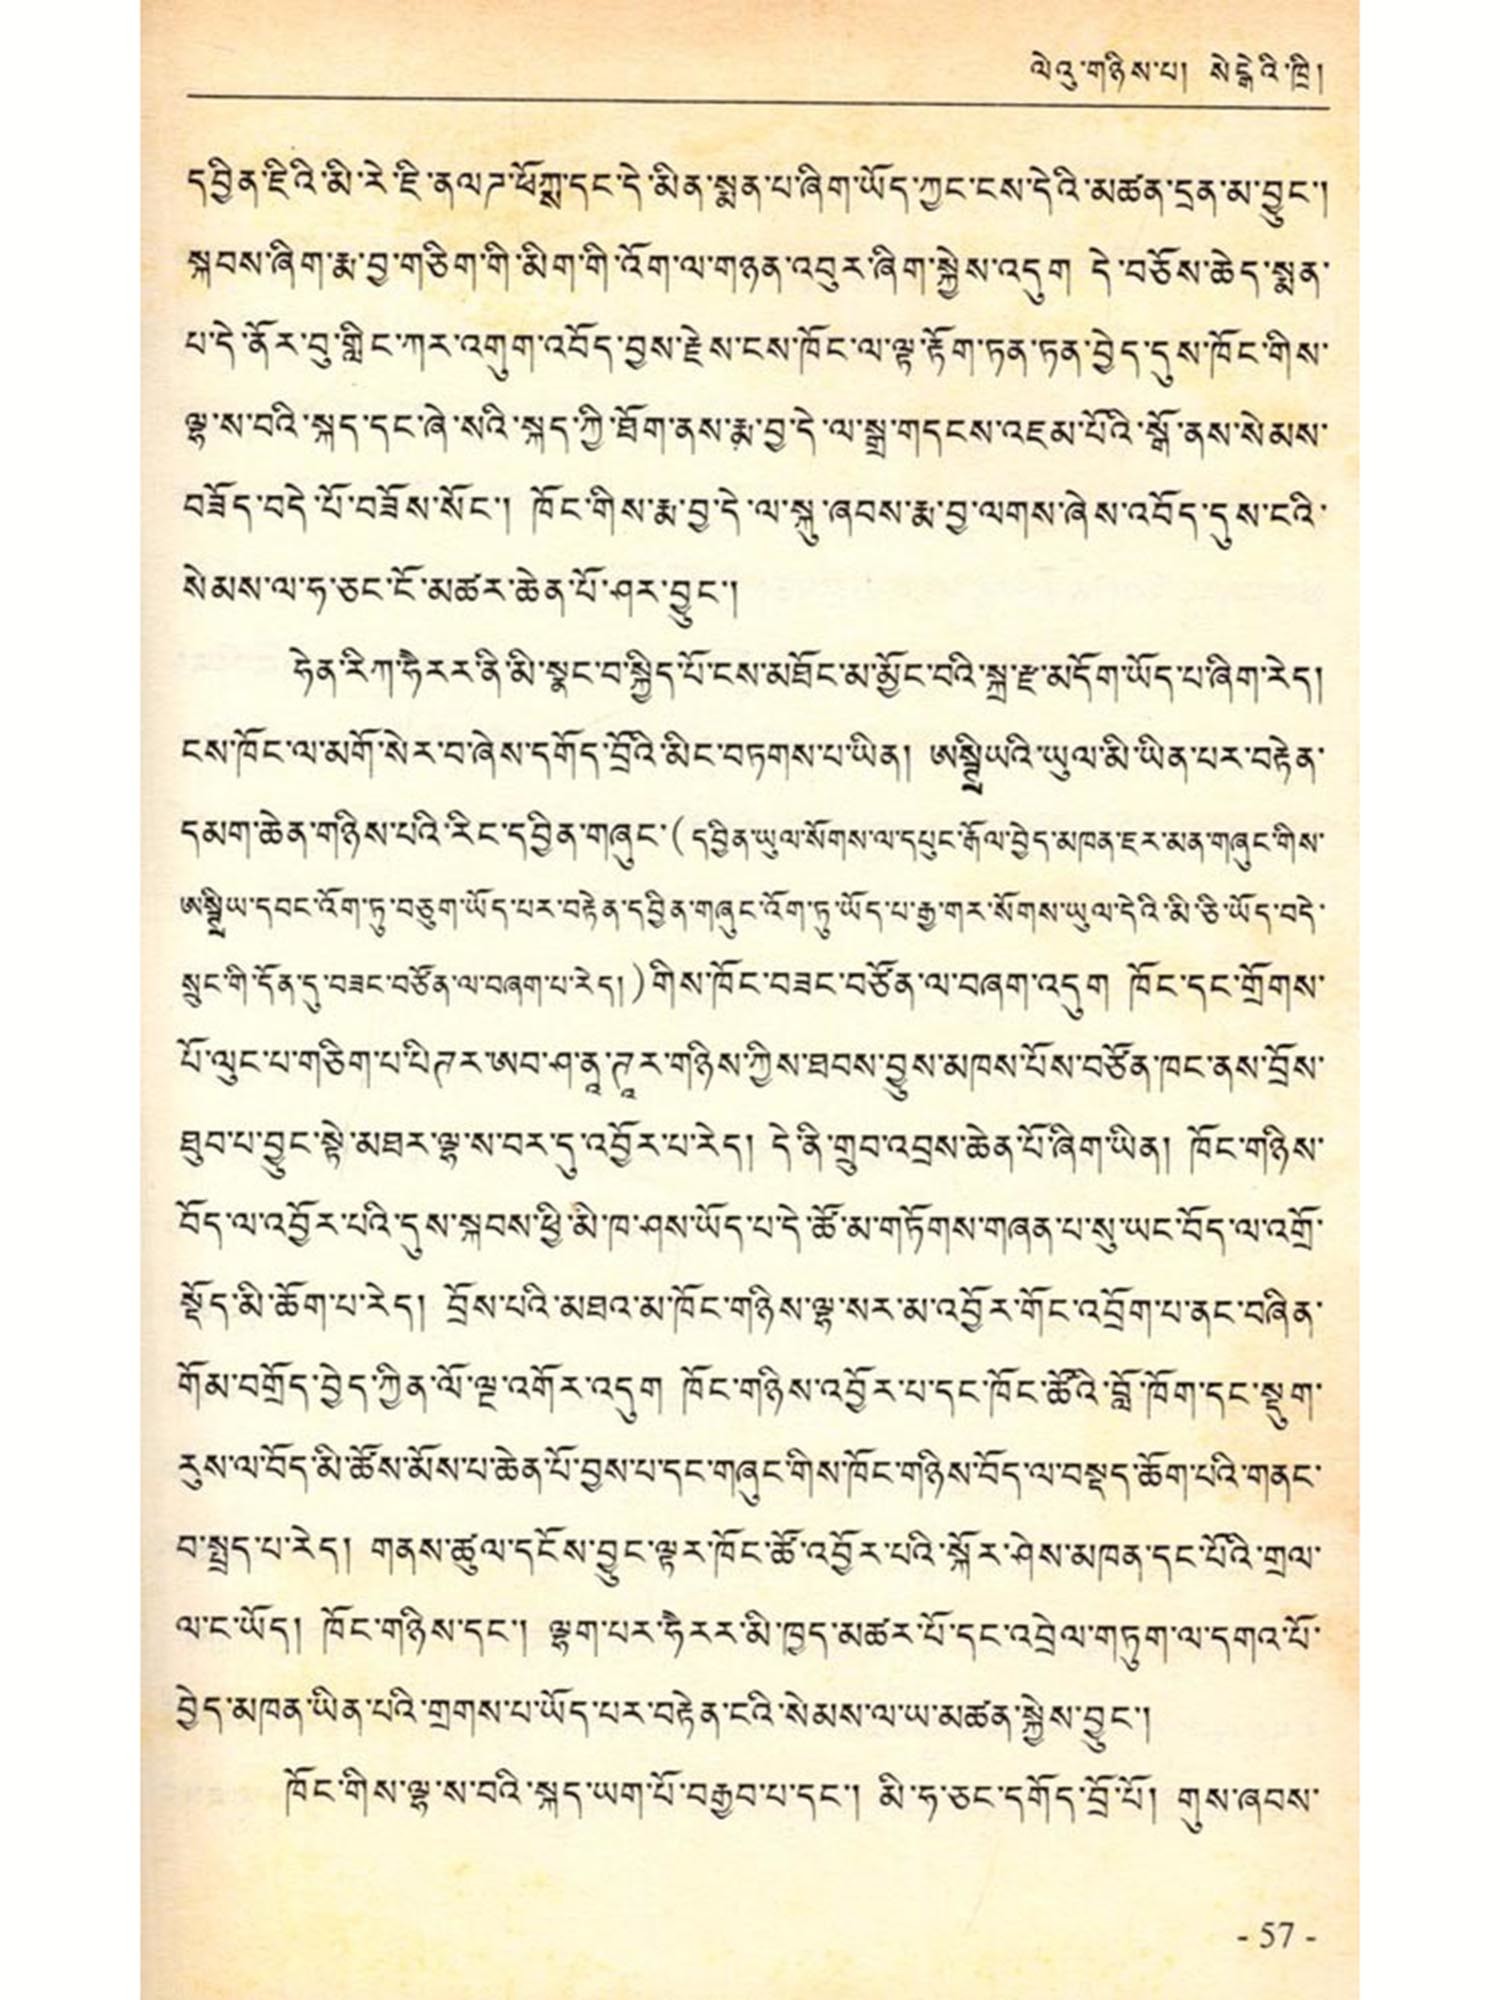 ལེའུ་གཉིས་པ། སེངྒེའི་ཁྲི།
དབྱིན་ཇིའི་མི་རེ་ཇི་ནལཊ་ཕོཀྶ་དང་དེ་མིན་སྨན་པ་ཞིག་ཡོད་ཀྱང་ངས་དེའི་མཚན་དྲན་མ་བྱུང་།
སྐབས་ཞིག་རྨ་བྱ་གཅིག་གི་མིག་གི་འོག་ལ་གཉན་འབུར་ཞིག་སྐྱེས་འདུག དེ་བཅོས་ཆེད་སྨན་
པ་དེ་ནོར་བུ་གླིང་ཀར་འགུག་འབོད་བྱས་རྗེས་ངས་ཁོང་ལ་ལྟ་རྟོག་ཏན་ཏན་བྱེད་དུས་ཁོང་གིས་
ལྷ་ས་བའི་སྐད་དང་ཞེ་སའི་སྐད་ཀྱི་ཐོག་ནས་རྨ་བྱ་དེ་ལ་སྒྲ་གདངས་འཇམ་པོའི་སྒོ་ནས་སེམས་
བཟོད་བདེ་པོ་བཟོས་སོང་། ཁོང་གིས་རྨ་བྱ་དེ་ལ་སྐུ་ཞབས་རྨ་བྱ་ལགས་ཞེས་འབོད་དུས་ངའི་
སེམས་ལ་ཧ་ཅང་ངོ་མཚར་ཆེན་པོ་ཤར་བྱུང་།
ཧེན་རིཀ་ཧཻརར་ནི་མི་སྣང་བ་སྐྱིད་པོ་ངས་མཐོང་མ་མྱོང་བའི་སྐྲ་རྫ་མདོག་ཡོད་པ་ཞིག་རེད།
ངས་ཁོང་ལ་མགོ་སེར་བ་ཞེས་དགོད་བྲོའི་མིང་བཏགས་པ་ཡིན། ཨསྚྲིཡའི་ཡུལ་མི་ཡིན་པར་བརྟེན་
དམག་ཆེན་གཉིས་པའི་རིང་དབྱིན་གཞུང་(དབྱིན་ཡུལ་སོགས་ལ་དཔུང་རྒོལ་བྱེད་མཁན་ཇར་མན་གཞུང་གིས་
ཨསྚྲིཡ་དབང་འོག་ཏུ་བཅུག་ཡོད་པར་བརྟེན་དབྱིན་གཞུང་འོག་ཏུ་ཡོད་པ་རྒྱ་གར་སོགས་ཡུལ་དེའི་མི་ཅི་ཡོད་བདེ་
སྲུང་གི་དོན་དུ་བཟང་བཙོན་ལ་བཞག་པ་རེད།)གིས་ཁོང་བཟང་བཙོན་ལ་བཞག་འདུག ཁོང་དང་གྲོགས་
པོ་ལུང་པ་གཅིག་པ་པིཊར་ཨབ་ཤ་ནཱ་ཊཱར་གཉིས་ཀྱིས་ཐབས་བྱུས་མཁས་པོས་བཙོན་ཁང་ནས་བྲོས་
ཐུབ་པ་བྱུང་སྟེ་མཐར་ལྷ་ས་བར་དུ་འབྱོར་པ་རེད། དེ་ནི་གྲུབ་འབྲས་ཆེན་པོ་ཞིག་ཡིན། ཁོང་གཉིས་
བོད་ལ་འབྱོར་པའི་དུས་སྐབས་ཕྱི་མི་ཁ་ཤས་ཡོད་པ་དེ་ཚོ་མ་གཏོགས་གཞན་པ་སུ་ཡང་བོད་ལ་འགྲོ་
སྡོད་མི་ཆོག་པ་རེད། བྲོས་པའི་མཐའ་མ་ཁོང་གཉིས་ལྷ་སར་མ་འབྱོར་གོང་འབྲོག་པ་ནང་བཞིན་
གོམ་བགྲོད་བྱེད་ཀྱིན་ལོ་ལྔ་འགོར་འདུག ཁོང་གཉིས་འབྱོར་པ་དང་ཁོང་ཚོའི་བློ་ཁོག་དང་སྡུག་
རུས་ལ་བོད་མི་ཚོས་མོས་པ་ཆེན་པོ་བྱས་པ་དང་གཞུང་གིས་ཁོང་གཉིས་བོད་ལ་བསྡད་ཆོག་པའི་གནང་
བ་སྤྲད་པ་རེད། གནས་ཚུལ་དངོས་བྱུང་ལྟར་ཁོང་ཚོ་འབྱོར་པའི་སྐོར་ཤེས་མཁན་དང་པོའི་གྲལ་
ལ་ང་ཡོད། ཁོང་གཉིས་དང་། ལྷག་པར་ཧཻརར་མི་ཁྱད་མཚར་པོ་དང་འབྲེལ་གཏུག་ལ་དགའ་པོ་
བྱེད་མཁན་ཡིན་པའི་གྲགས་པ་ཡོད་པར་བརྟེན་ངའི་སེམས་ལ་ཡ་མཚན་སྐྱེས་བྱུང་།
ཁོང་གིས་ལྷ་ས་བའི་སྐད་ཡག་པོ་བརྒྱབ་པ་དང་། མི་ཧ་ཅང་དགོད་བྲོ་པོ། གུས་ཞབས་
- 57 -